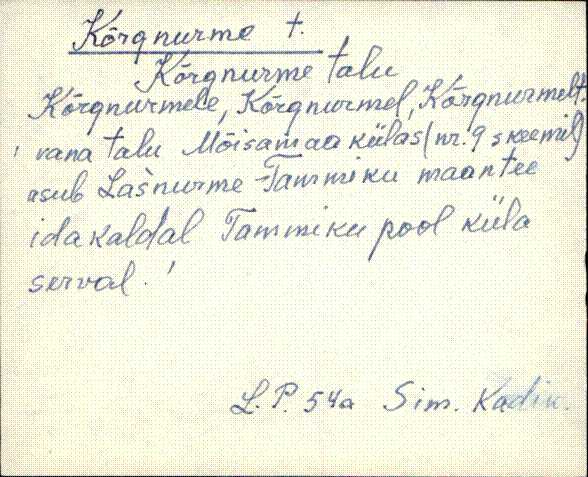 Kõrgnurme t.
Kõrgnurme talu
Kõrgnurmele, Kõrgnurmel, Kõrgnurmelt.
' vana talu Mõisamaa külas (nr. 9 skeemil)
asub Lašnurme-Tammiku maantee
idakaldal Tammiku pool küla
serval.'
L. P. 54a Sim. Kadiv.